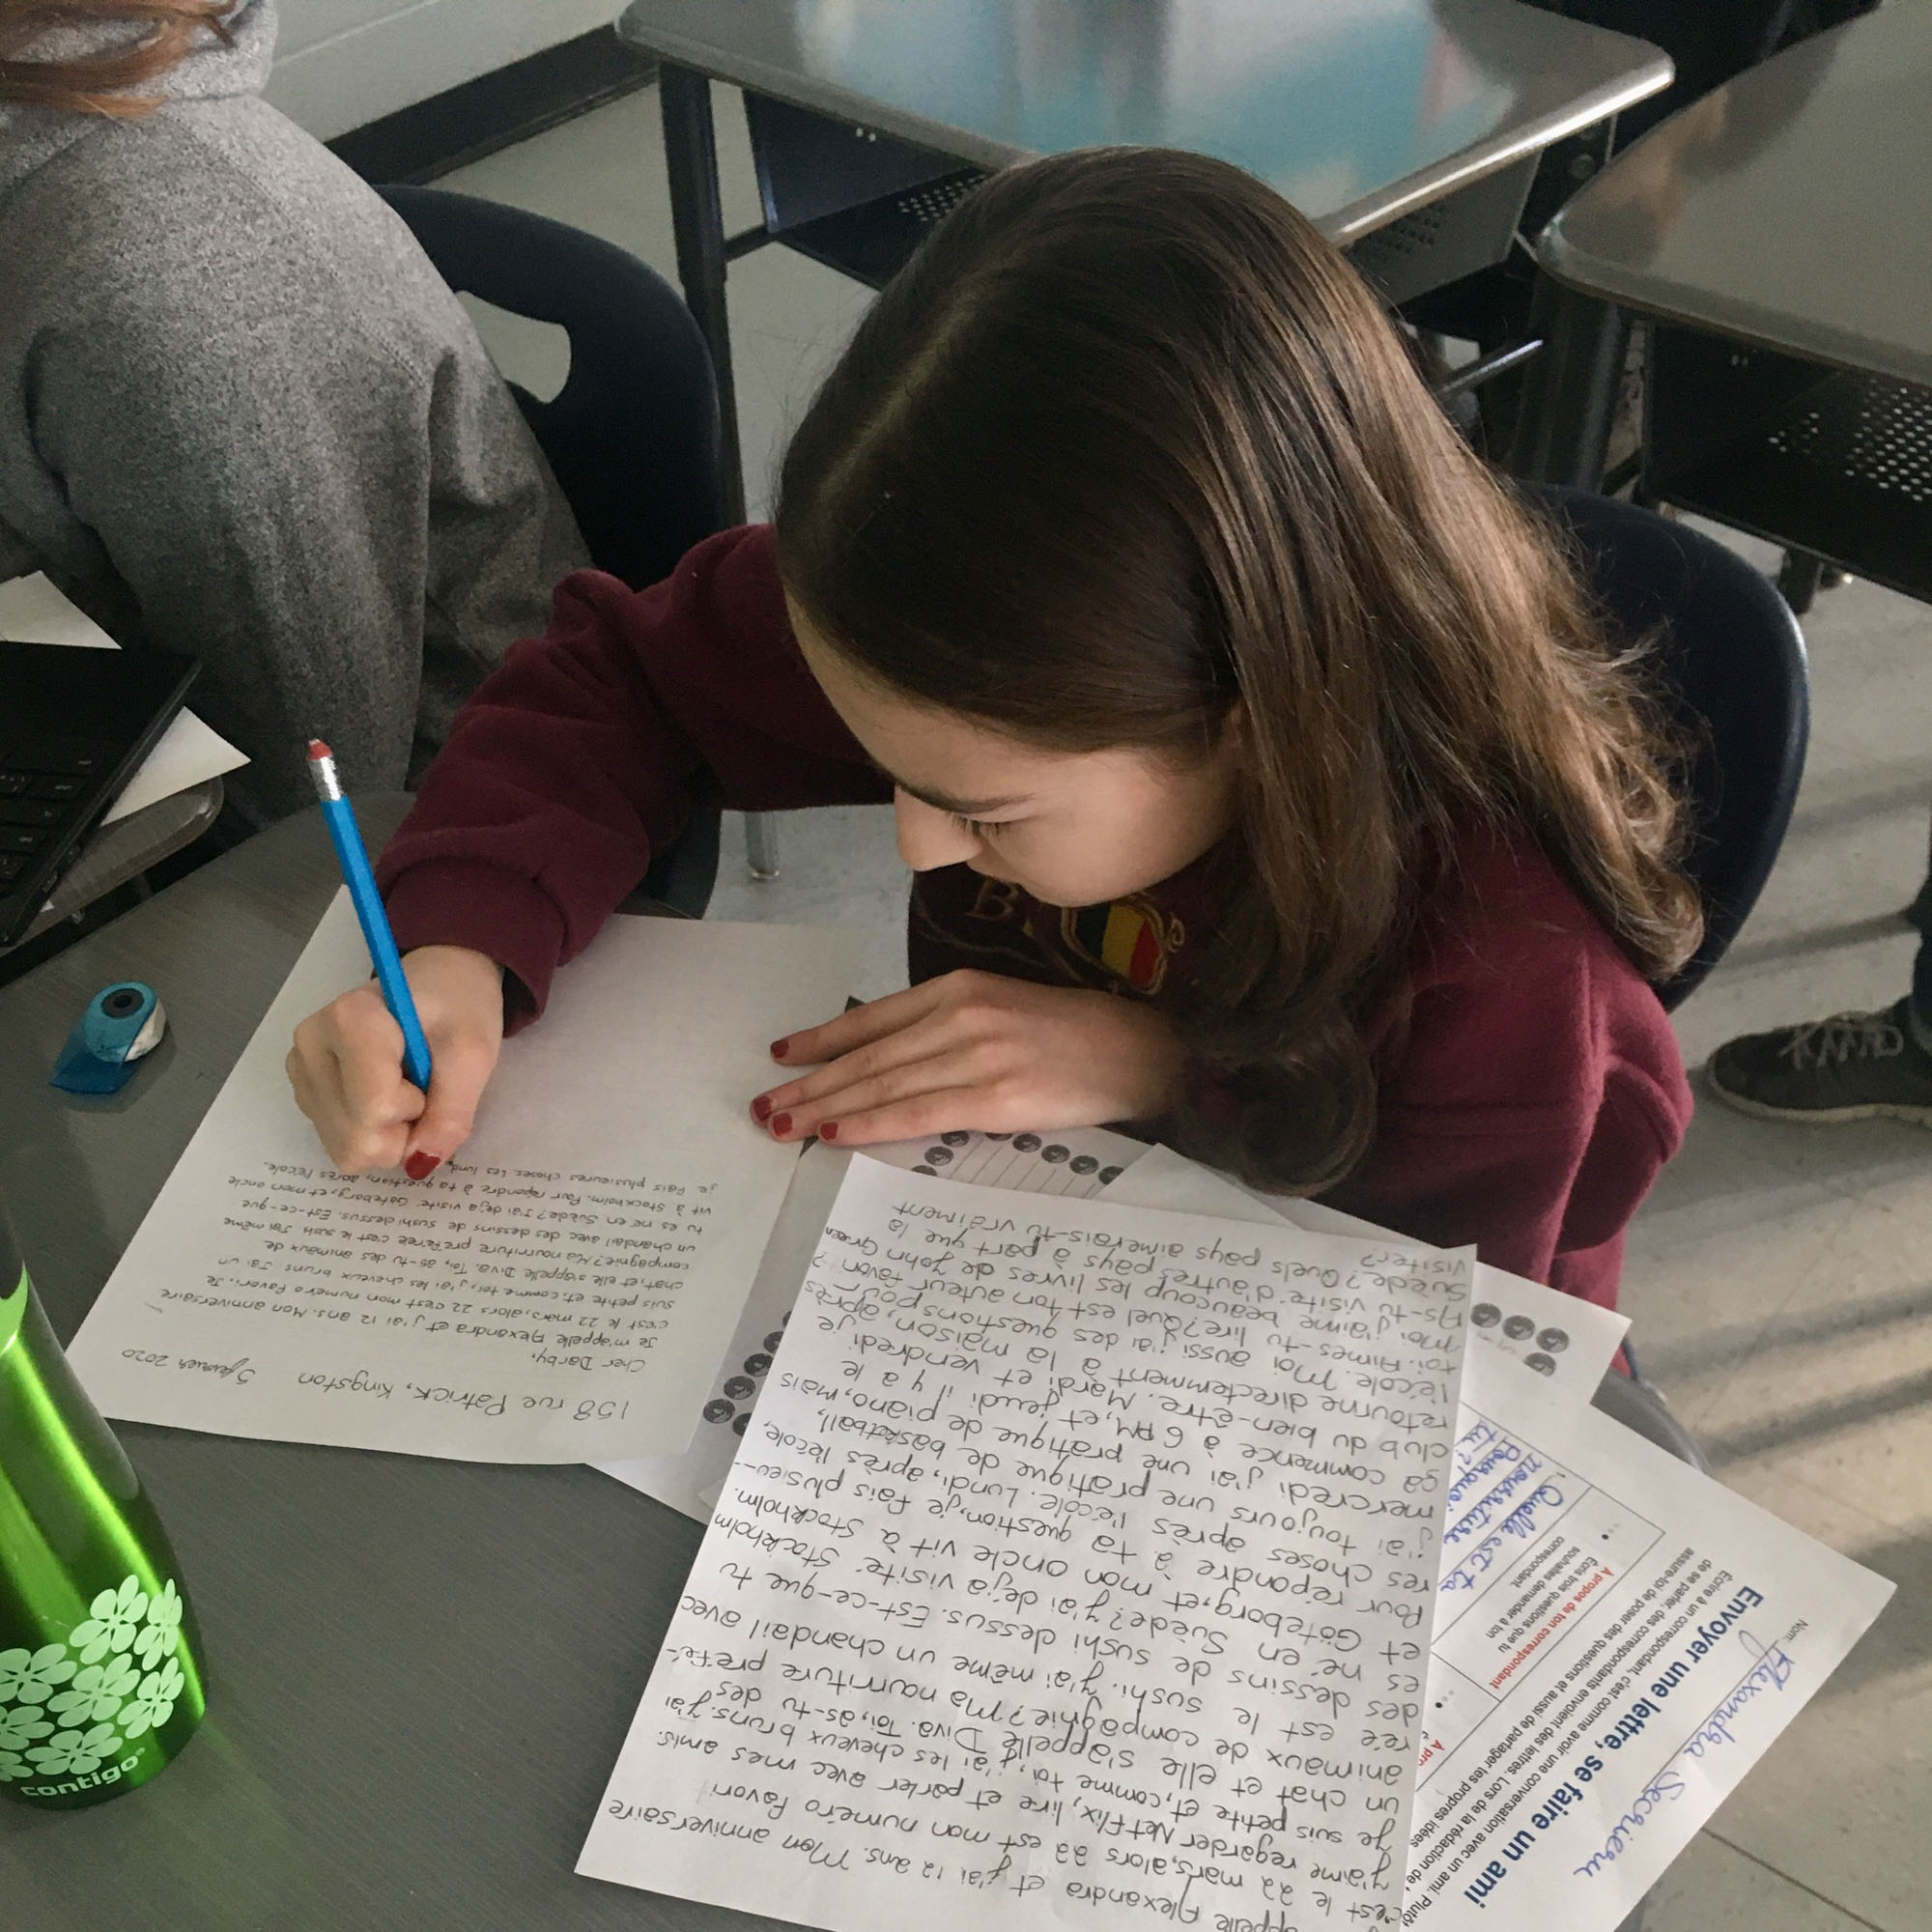 158 rue Patrick, Kingston
5 janvier 2020
Cher Darby,
Je m'appelle Alexandra et j'ai 12 ans. Mon anniversaire
c'est le 22 mars, alors 22 c'est mon numéro favori. Je
suis petite et, comme toi, j'ai les cheveux bruns. J'ai un
chat, et elle s'appelle Diva. Toi, as-tu des animaux de
compagnie? Ma nourriture préférée c'est le sushi. J'ai même
un chandail avec des dessins de sushi dessus. Est-ce-que
tu es né en Suède? J'ai déjà visité Göteborg, et mon oncle
vit à Stockholm. Pour répondre à ta question, après l'école,
je fais plusieures choses. Les lund
appelle Alexandra et j'ai 12 ans. Mon anniversaire
c'est le 22 mars, alors 22 est mon numéro favori
J'aime regarder Netflix, lire et parler avec mes amis.
Je suis petite et, comme toi, j'ai les cheveux bruns. J'ai
un chat et elle s'appelle Diva. Toi, as-tu des
animaux de compagnie? Ma nourriture préfé-
rée est le sushi. J'ai même un chandail avec
des dessins de sushi dessus. Est-ce-que tu
es né en Suède? J'ai déjà visité Stockholm
et Göteborg, et mon oncle vit à Stockholm.
Pour répondre à ta question, je fais plusieu-
res choses après l'école. Lundi, après l'école,
j'ai toujours une pratique de basketball,
mercredi j'ai une pratique de piano, mais
ça commence à 6 PM, et jeudi il y a le
club du bien-être. Mardi et vendredi je
retourne directemment à la maison, après
l'école. Moi aussi j'ai des questions pour
toi. Aimes-tu lire? Quel est ton auteur favori?
Moi j'aime beaucoup les livres de John Green
As-tu visité d'autres pays à part que la
Suède? Quels pays aimerais-tu vraiment
visiter?
Nom: Alexandra Secrieru
Envoyer une lettre, se faire un ami
Écrire à un correspondant, c'est comme avoir une conversation avec un ami. Plutôt
de se parler, des correspondants envoient des lettres. Lors de la rédaction de
assure-toi de poser des questions et aussi de partager tes propres idées
À propos de ton correspondant
Écris trois questions que tu
souhaites demander à ton
correspondant.
À pro
Quelle est ta
nourriture
Pourquoi
tu?
contigo